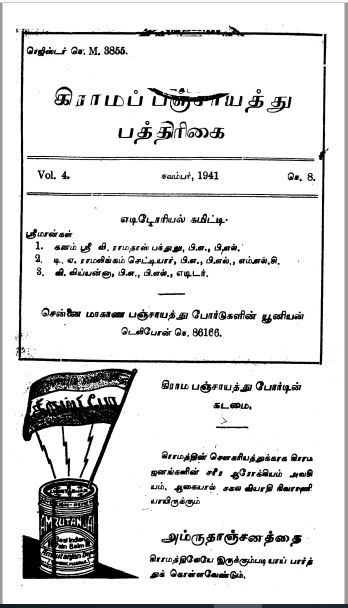 ரெஜிஸ்டர் செ. M. 3855.
கிராமப் பஞ்சாயத்து
பத்திரிகை
Vol. 4.
நவம்பர், 1941
செ. 8.
எடிடோரியல் கமிட்டி.
ஸ்ரீமான்கள்
1. கனம் ஸ்ரீ வி. ராமதாஸ் பந்துலு, பி.ஏ., பி.எல்.
2. டி. ஏ. ராமலிங்கம் செட்டியார், பி.ஏ., பி.எல்., எம்.எல்.சி.
3. வி. லிய்யன்னா, பி.ஏ., பி.எல்., எடிடர்.
சென்னை மாகாண பஞ்சாயத்து போர்டுகளின் யூனியன்
டெலிபோன் செ. 86166.
கிராம பஞ்சாயத்து போர்டின்
கடமை.
கிராமத்தின் சௌகரியத்துக்காக கிராம
ஜனங்களின் சரீர ஆரோக்கியம் அவசி
யம், ஆகையால் சகல வியாதி நிவாரணி
யாயிருக்கும்
அம்ருதாஞ்சனத்தை
கிராமத்திலேயே இருக்கும்படியாய் பார்த்
துக் கொள்ளவேண்டும்.
AMRUTANJAN
Best Indian
Pain Balm